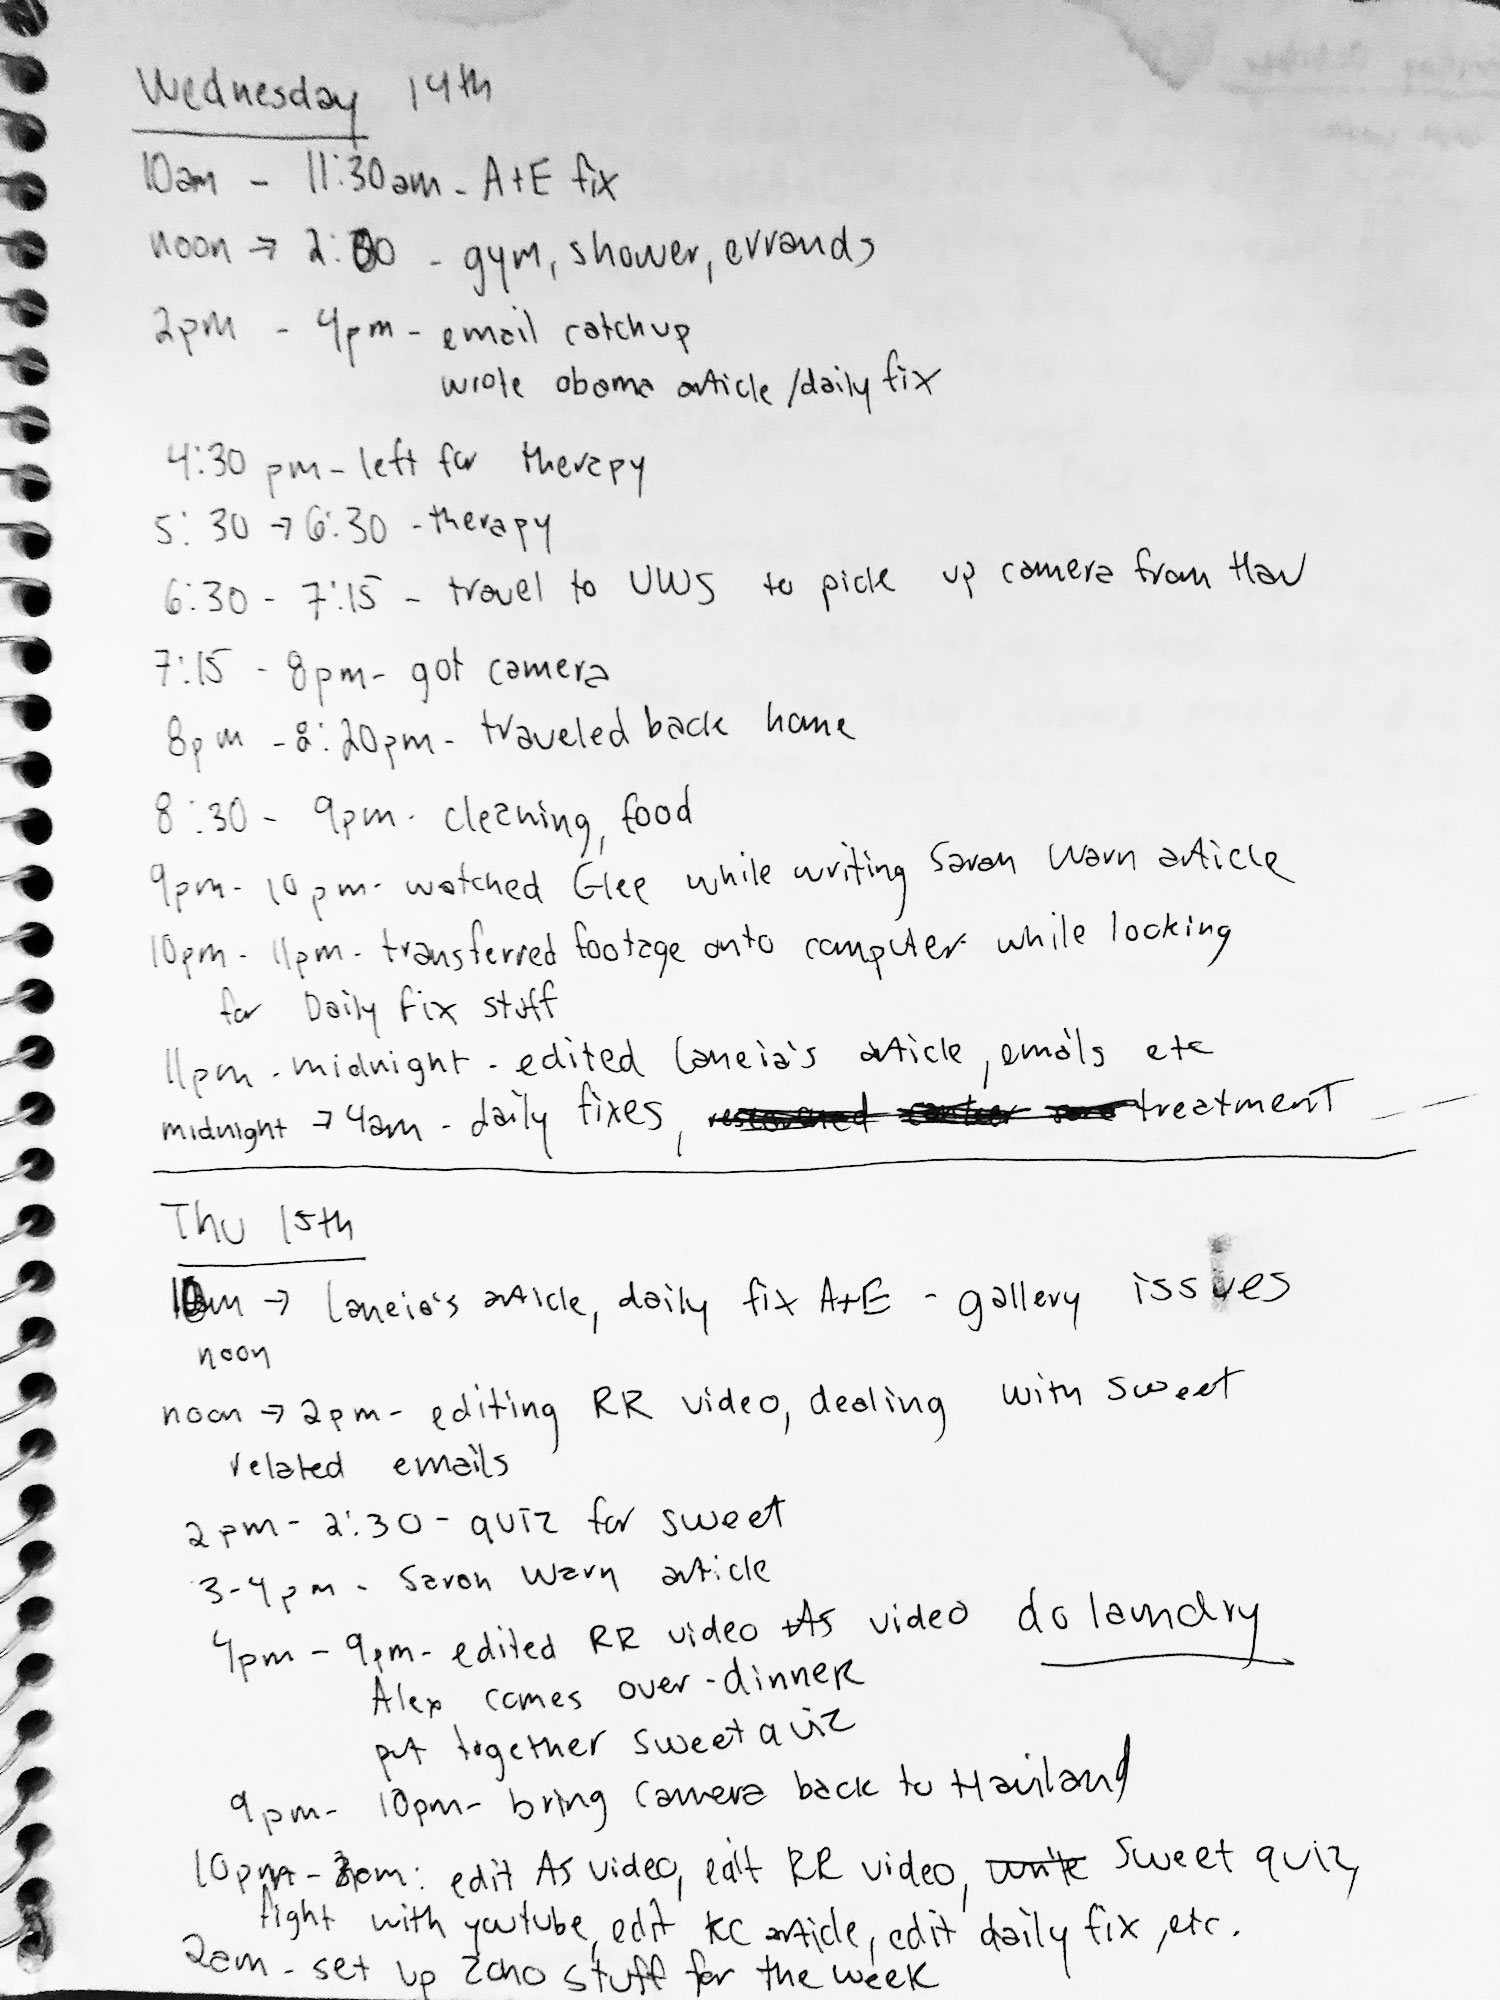 Wednesday 14th
10am - 11:30am - A+E fix
noon → 2:00 - gym, shower, errands
2pm - 4pm - email catchup
wrote obama article/daily fix
4:30 pm - left for therapy
5:30 → 6:30 - therapy
6:30 - 7:15 - travel to UWS to pick up camera from Hav
7:15 - 8pm - got camera
8pm - 8:20pm - traveled back home
8:30 - 9pm - cleaning, food
9pm - 10pm - watched Glee while writing Sarah Warn article
10pm - 11pm - transferred footage onto computer while looking
for Daily Fix stuff
11pm - midnight - edited Laneia's article, emails etc
midnight → 4am - daily fixes, treatment
Thu 15th
10am → Laneia's article, daily fix A+E - gallery issues
noon
noon → 2pm - editing RR video, dealing with sweet
related emails
2pm - 2:30 - quiz for sweet
3-4pm - Sarah Warn article
4pm - 9pm - edited RR video +AS video do laundry
Alex comes over - dinner
put together sweet quiz
9pm - 10pm - bring camera back to Haviland
10pm - 3am: edit AS video, edit RR video, write sweet quiz,
fight with youtube, edit KC article, edit daily fix, etc.
2am - set up Zoho stuff for the week